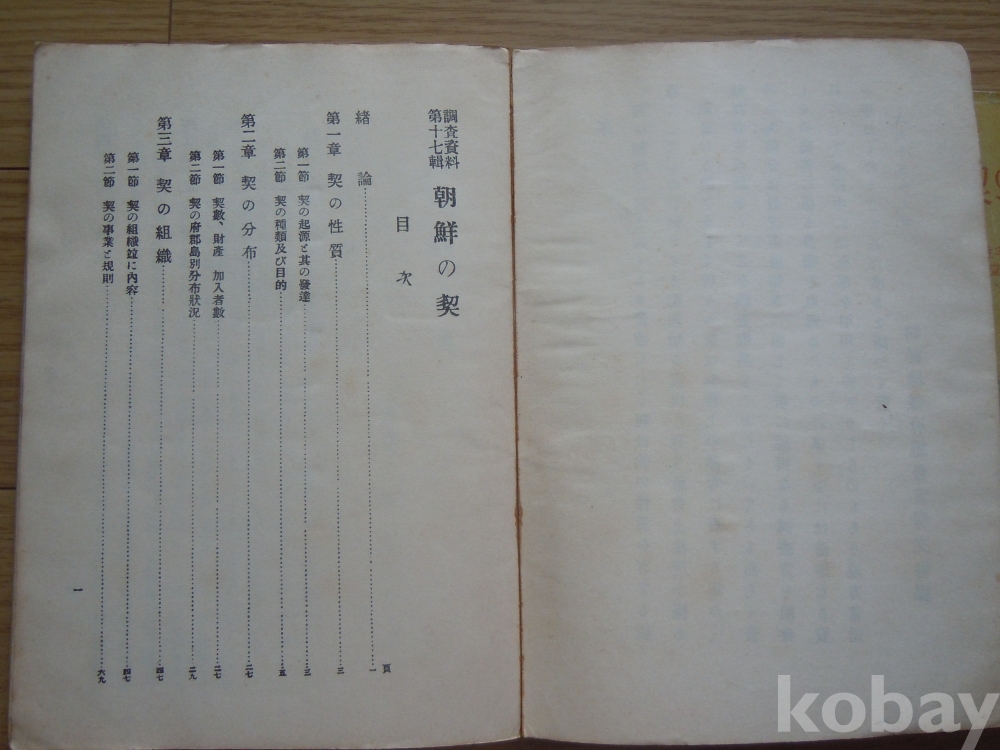 調査資料
第十七輯
朝鮮の契
目次
頁
緒論 一
第一章 契の性質 三
第一節 契の起源と其の發達 三
第二節 契の種類及び目的 五
第二章 契の分布 二七
第一節 契數、財產 加入者數 二七
第二節 契の府郡島別分布狀況 二九
第三章 契の組織 四七
第一節 契の組織竝に內容 四七
第二節 契の事業と規則 六九
一
kobay